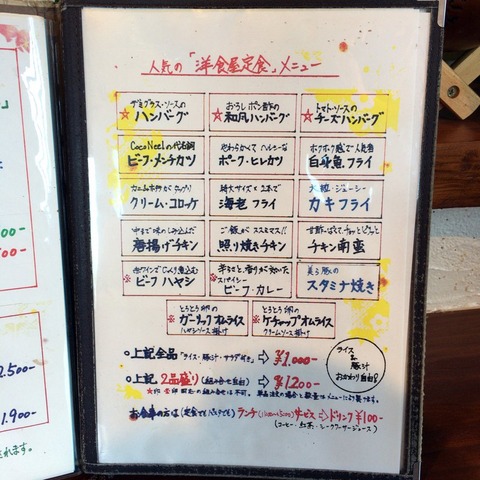 人気の「洋食屋定食」メニュー
デミグラス・ソースの
☆ハンバーグ
おろしポン酢の
☆和風ハンバーグ
トマト・ソースの
☆チーズハンバーグ
CocoNeelの代名詞
ビーフ・メンチカツ
やわらかくて ヘルシーな
ポーク・ヒレカツ
ホクホク感で人気者
白身魚フライ
カニの身が
クリーム・コロッケ
特大サイズを2本で
海老フライ
ジューシー
カキフライ
中まで味のしみ込んだ
唐揚げチキン
ご飯が ススミマス!!
照り焼きチキン
甘酢
チキン南蛮
赤ワインでじっくり煮込む
※ビーフ ハヤシ
辛さと、香りが効いた
スパイシー
※ビーフ・カレー
豚の
スタミナ焼き
とろとろ卵の
※ガーリックオムライス
ハヤシソース掛け
とろとろ卵の
※ケチャップオムライス
クリームソース掛け
○上記全品「ライス・豚汁・サラダ付き」⇒¥1.000-
○上記 2品盛り(組み合せ自由)⇒¥1200-
※印
ライス
&
豚汁
おかわり自由!
お食事の方は(定食でもパスタでも)ランチ サービス⇒ドリンク¥100-
(コーヒー・紅茶・シークワーサージュース)
2.500-
1.900-
れます。